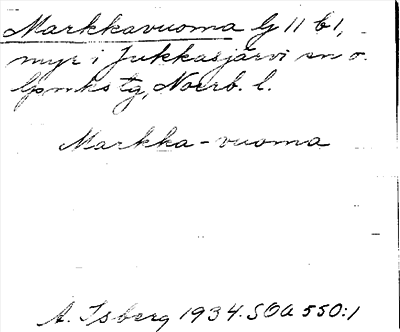 Markkavuoma Lj 11 b 1,
myr i Jukkasjärvi sn o.
lpmks tg, Norrb. l.
Markka-vuoma
A. Isberg 1934. SOA 550:1